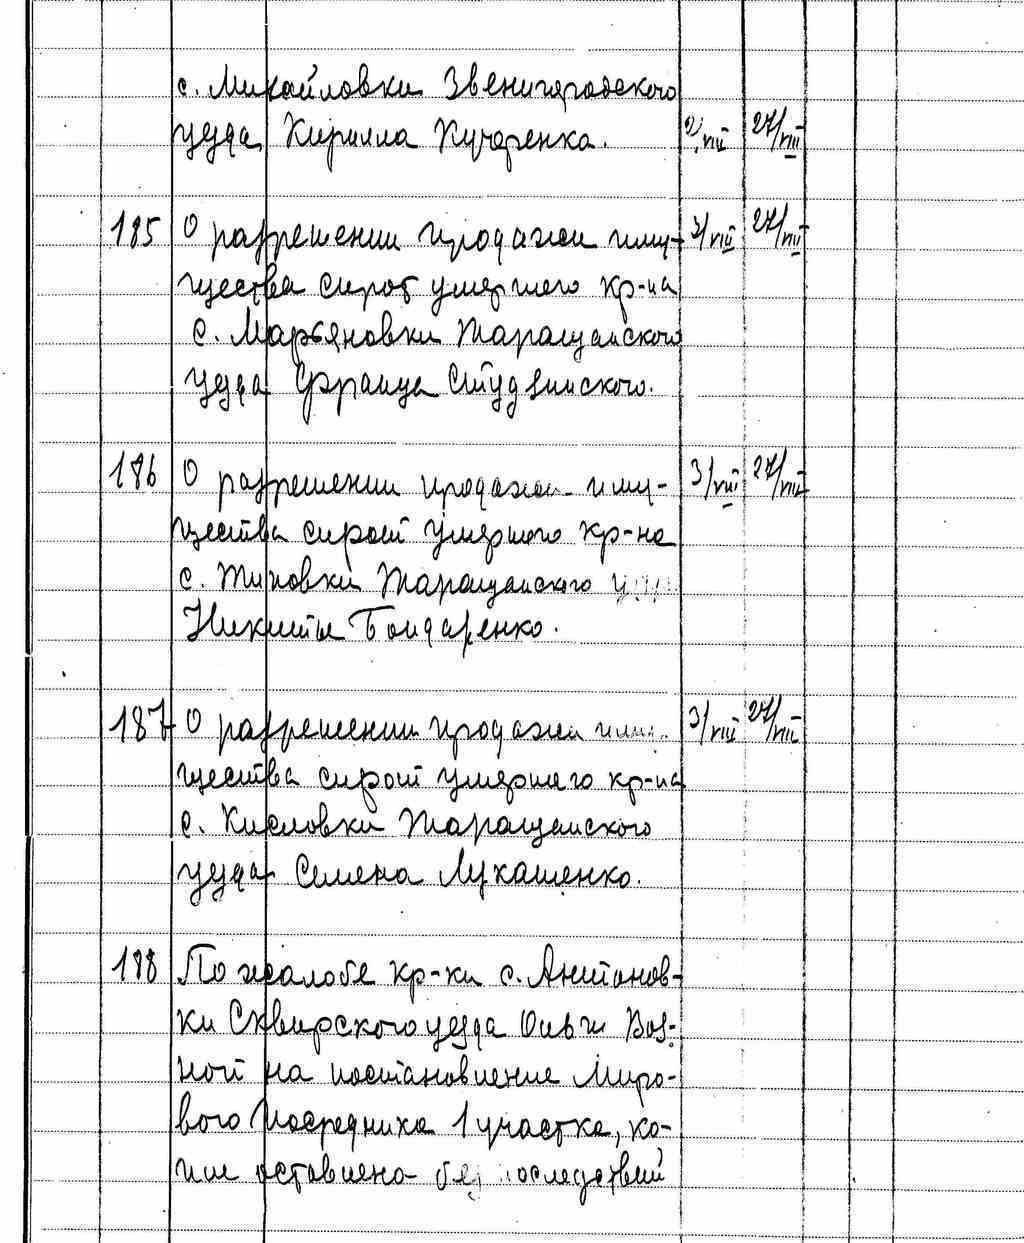 с. Михайловки Звенигородского
уезда Кирилла Кучеренка. 2/VIII 27/VIII
185 О разрешении продажи иму- 3/VIII 27/VIII
щества сирот умершего кр-на
с. Марьяновки Таращанского
уезда Франца Студзинского.
186 О разрешении продажи иму- 3/VIII 27/VIII
щества сирот умершего кр-на
с. Таращанского
Никиты Бондаренко.
187 О разрешении продажи иму- 3/VIII 27/VIII
щества сирот умершего кр-на
с. Кисловки Таращанского
уезда Семена Лукашенко.
188 По жалобе кр-ки с. Антонов-
ки Сквирского уезда Воз-
ной на постановление Миро-
вого Посредника 1 участка, ко-
им оставлена без последствий